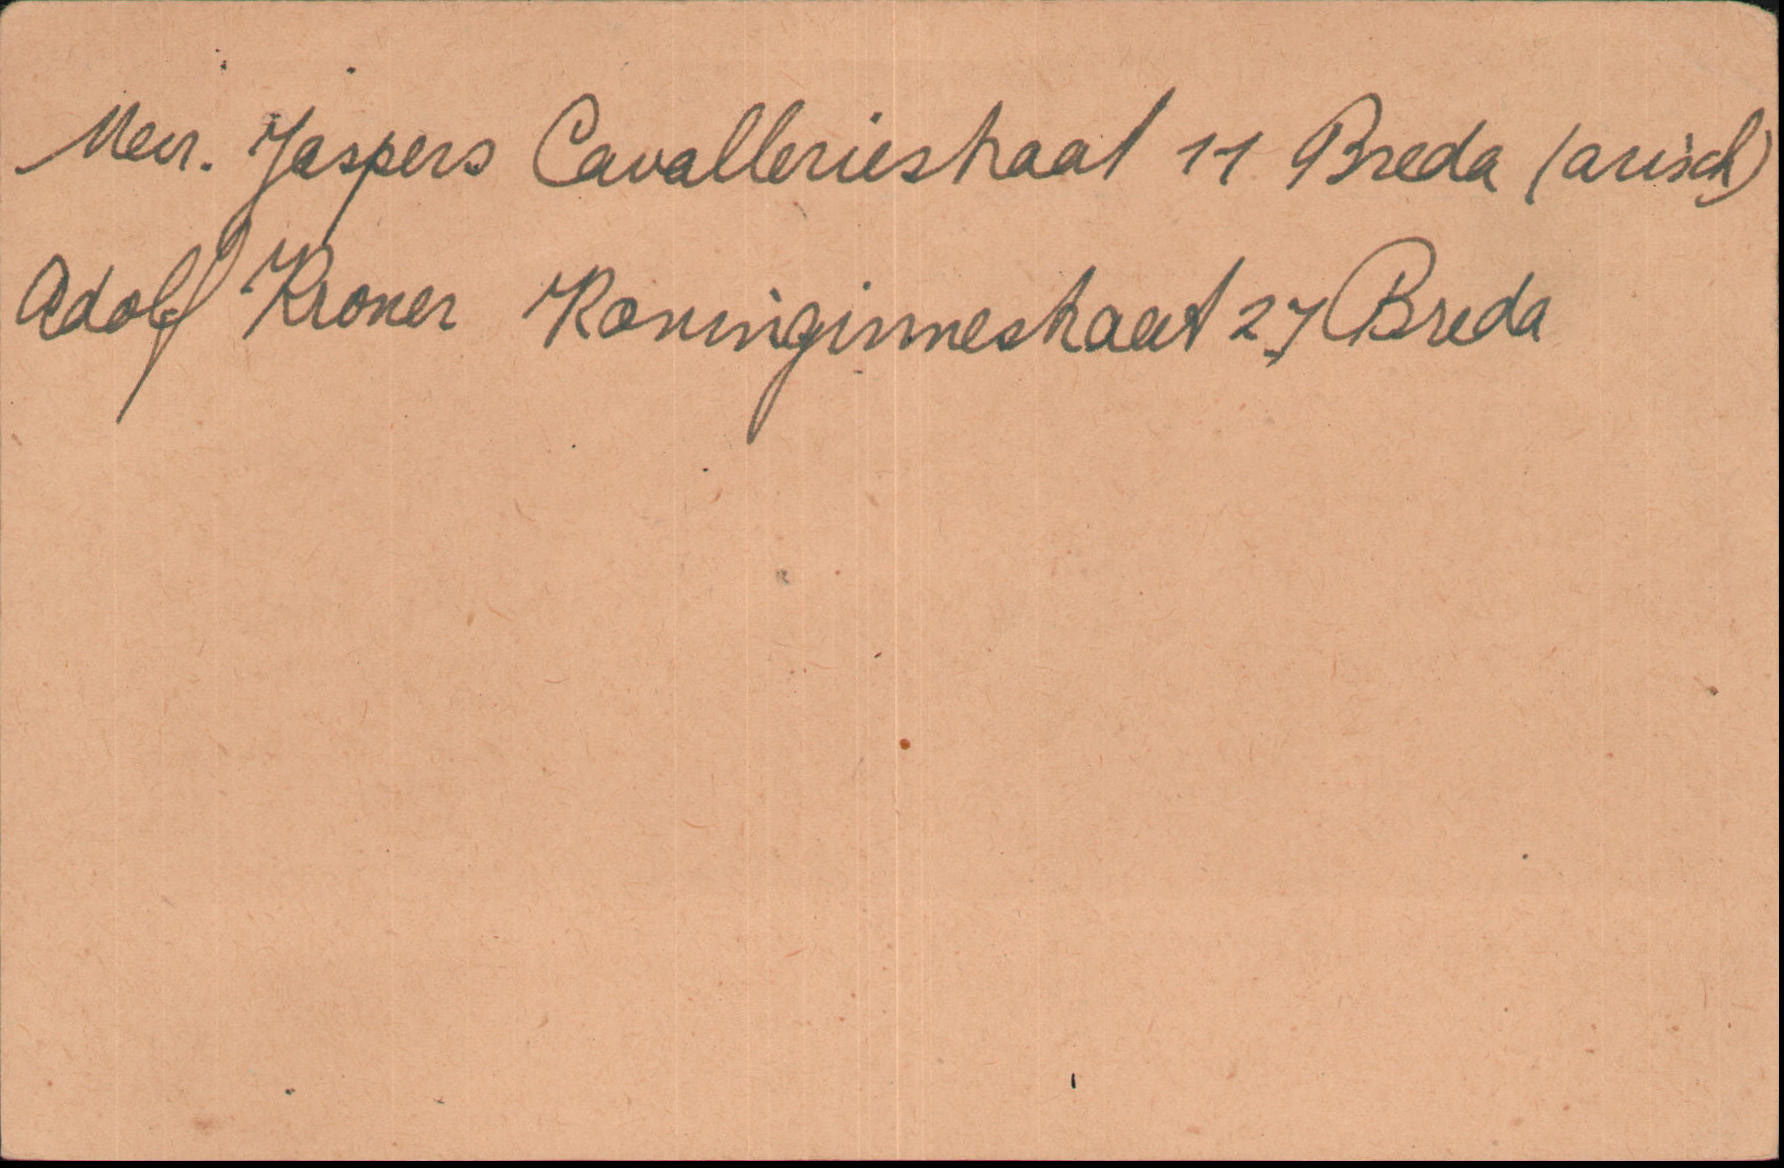 Mevr. Jaspers Cavalleriestraat 11 Breda (arisch)
Adolf Kroner Koninginnestraat 27 Breda